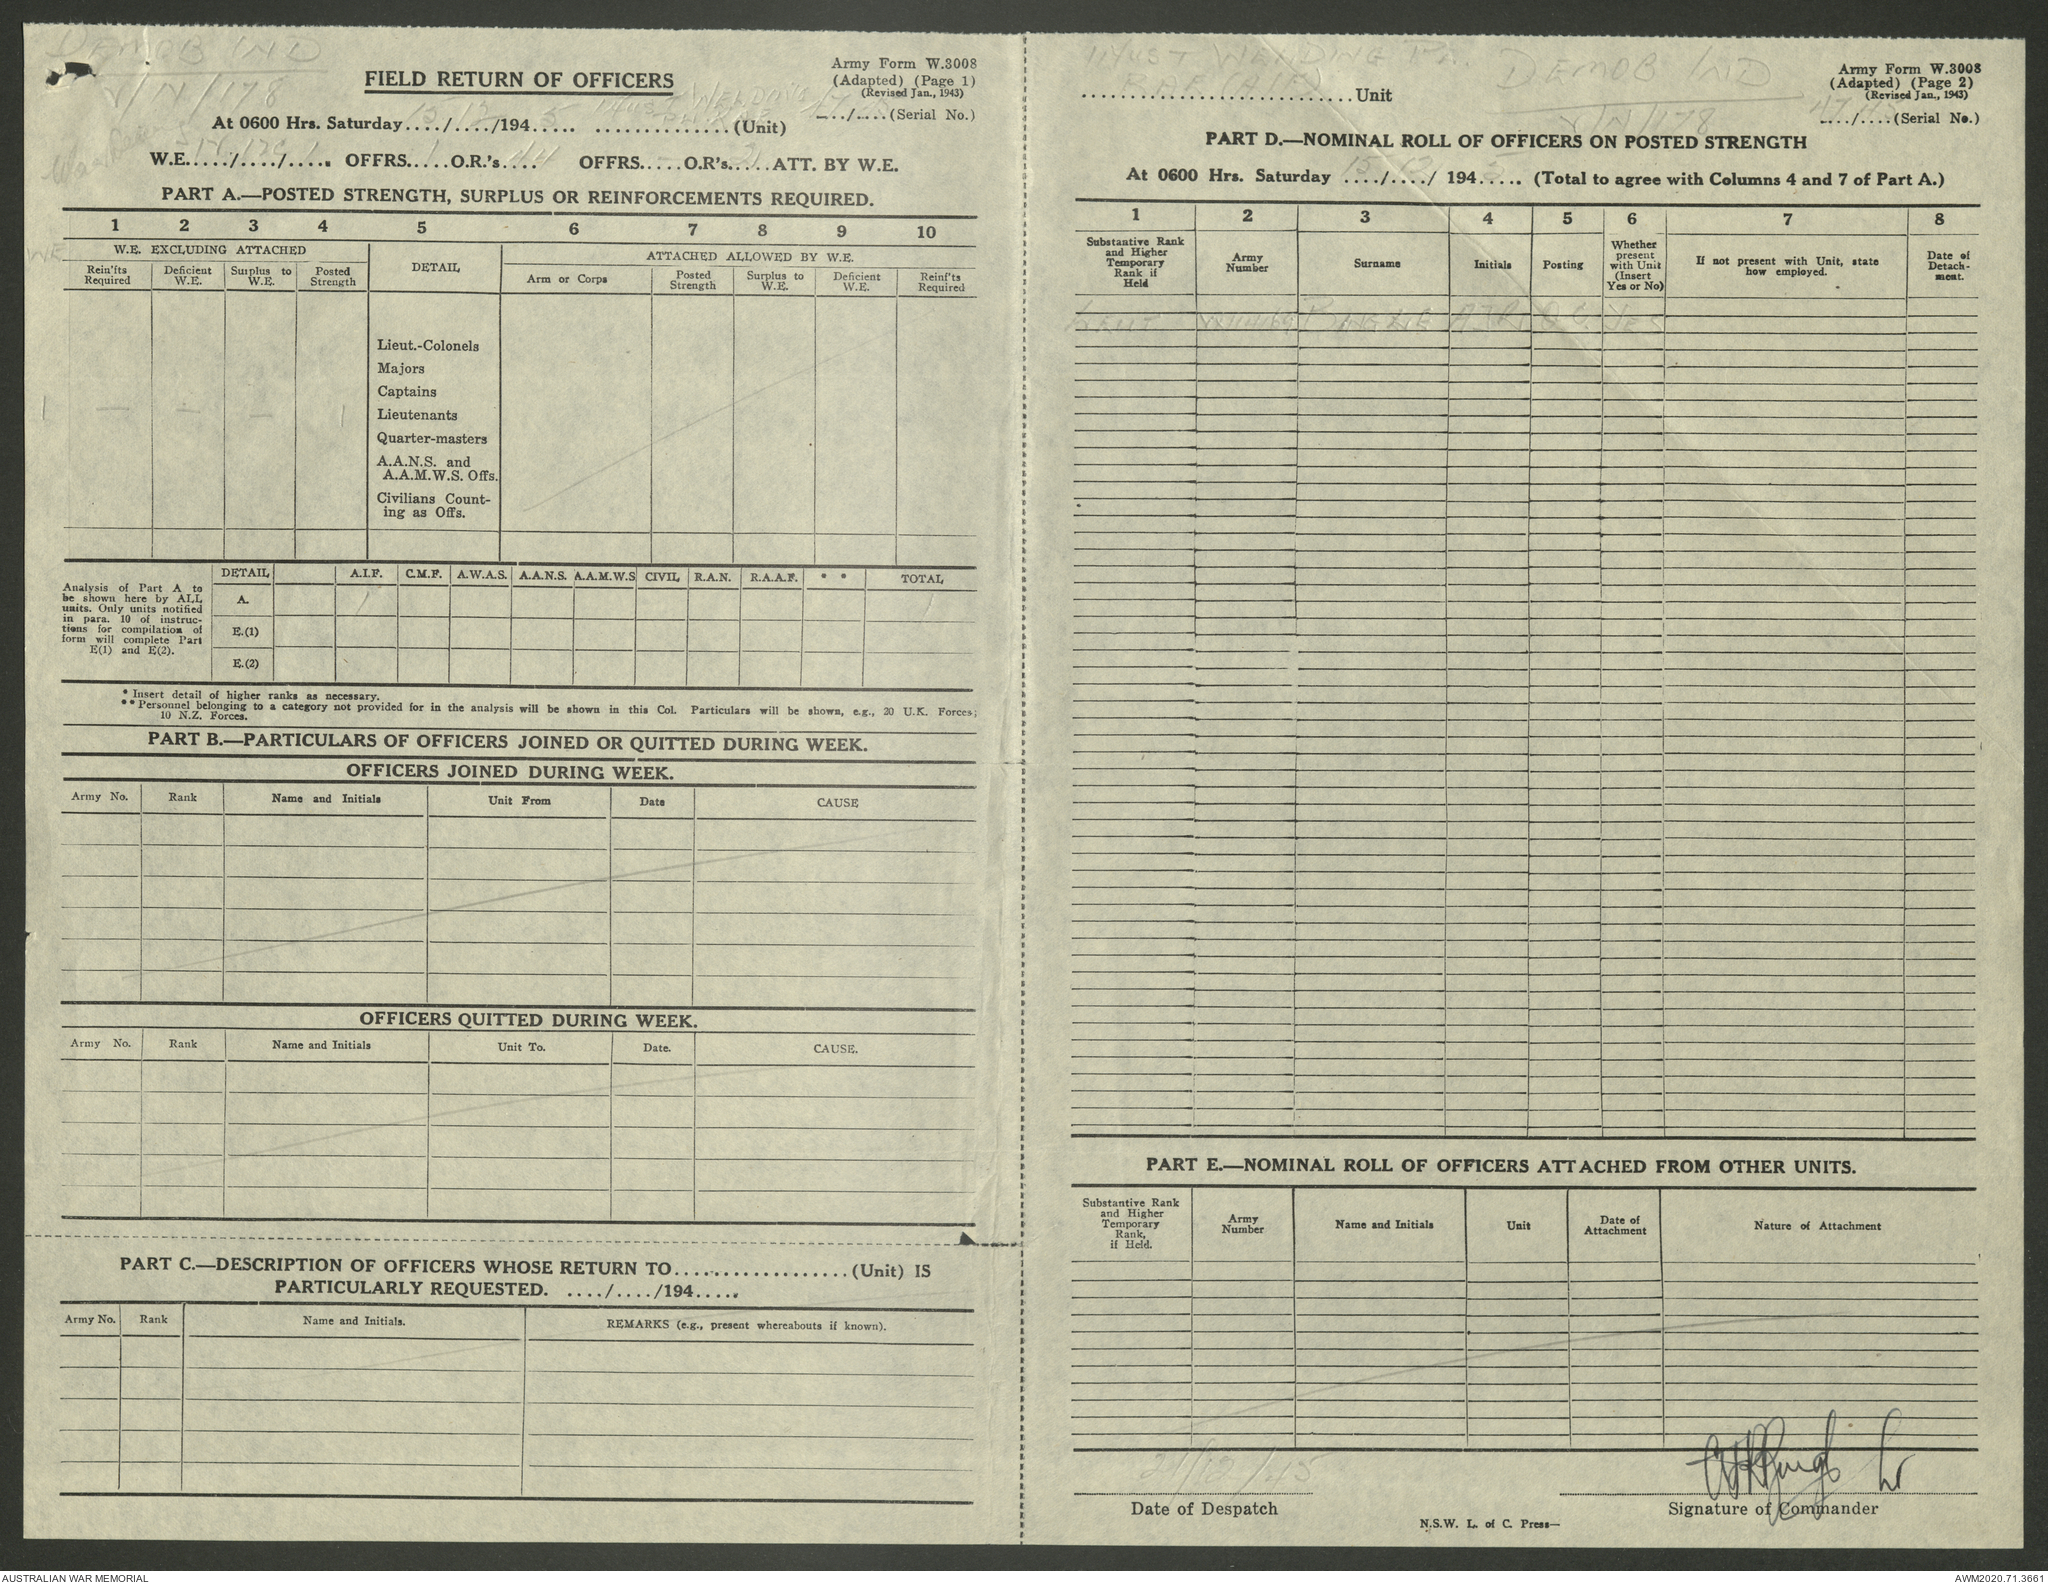 DEMOB IND
V/IN/178
FIELD RETURN OF OFFICERS
Army Form W.3008
(Adapted) (Page 1)
(Revised Jan., 1943)
At 0600 Hrs. Saturday 15/12/194 5 (Unit)
..../....(Serial No.)
W.E...../..../.... OFFRS. 1 O.R.'s.... OFFRS.....O.R's.....ATT. BY W.E.
PART A.—POSTED STRENGTH, SURPLUS OR REINFORCEMENTS REQUIRED.
1 2 3 4 5 6 7 8 9 10
WE
W.E. EXCLUDING ATTACHED
DETAIL
ATTACHED ALLOWED BY W.E.
Rein'fts Required
Deficient W.E.
Surplus to W.E.
Posted Strength
Arm or Corps
Posted Strength
Surplus to W.E.
Deficient W.E.
Reinf'ts Required
Lieut.-Colonels
Majors
Captains
1 — — — 1 Lieutenants
Quarter-masters
A.A.N.S. and
A.A.M.W.S. Offs.
Civilians Count-
ing as Offs.
Analysis of Part A to
be shown here by ALL
units. Only units notified
in para. 10 of instruc-
tions for compilation of
form will complete Part
E(1) and E(2).
DETAIL A.I.F. C.M.F. A.W.A.S. A.A.N.S. A.A.M.W.S CIVIL R.A.N. R.A.A.F. * * TOTAL
A. 1 1
E.(1)
E.(2)
* Insert detail of higher ranks as necessary.
** Personnel belonging to a category not provided for in the analysis will be shown in this Col. Particulars will be shown, e.g., 20 U.K. Forces;
10 N.Z. Forces.
PART B.—PARTICULARS OF OFFICERS JOINED OR QUITTED DURING WEEK.
OFFICERS JOINED DURING WEEK.
Army No. Rank Name and Initials Unit From Date CAUSE
OFFICERS QUITTED DURING WEEK.
Army No. Rank Name and Initials Unit To. Date. CAUSE.
PART C.—DESCRIPTION OF OFFICERS WHOSE RETURN TO...................(Unit) IS
PARTICULARLY REQUESTED. ..../..../194.....
Army No. Rank Name and Initials. REMARKS (e.g., present whereabouts if known).
WELDING
DEMOB IND
V/IN/178
..............................Unit
Army Form W.3008
(Adapted) (Page 2)
(Revised Jan., 1943)
..../....(Serial No.)
PART D.—NOMINAL ROLL OF OFFICERS ON POSTED STRENGTH
At 0600 Hrs. Saturday 15/12/ 194 5 (Total to agree with Columns 4 and 7 of Part A.)
1 2 3 4 5 6 7 8
Substantive Rank
and Higher
Temporary
Rank if
Held
Army
Number
Surname
Initials
Posting
Whether
present
with Unit
(Insert
Yes or No)
If not present with Unit, state
how employed.
Date of
Detach-
ment.
LEUT YES
PART E.—NOMINAL ROLL OF OFFICERS ATTACHED FROM OTHER UNITS.
Substantive Rank
and Higher
Temporary
Rank,
if Held.
Army
Number
Name and Initials
Unit
Date of
Attachment
Nature of Attachment
21/12/45
Date of Despatch
Lt
Signature of Commander
N.S.W. L. of C. Press—
AUSTRALIAN WAR MEMORIAL
AWM2020.71.3661